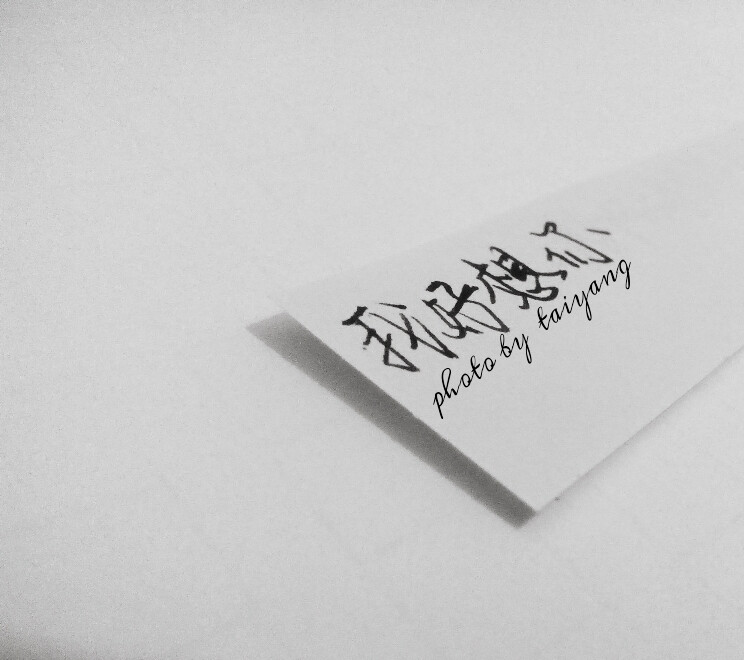 我好想你
photo by taiyang